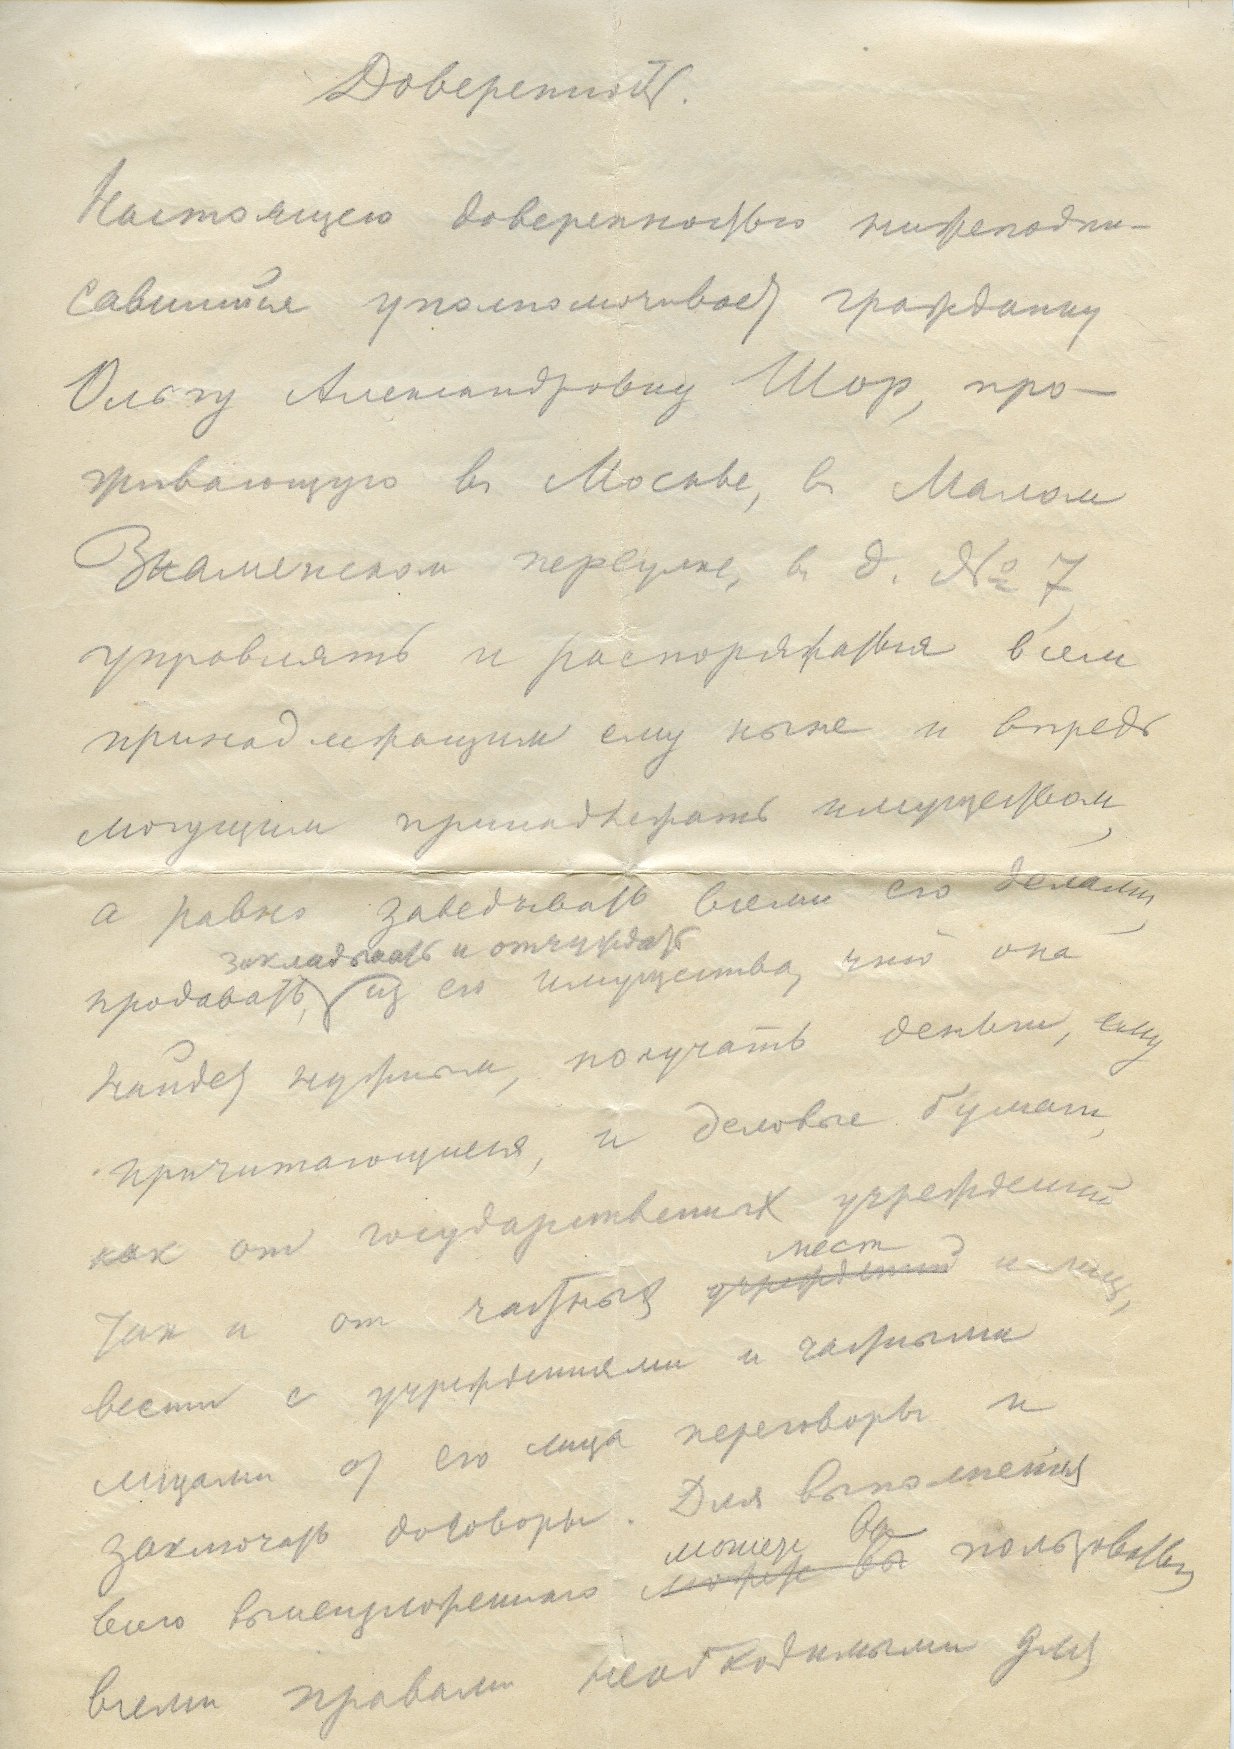 Доверенность.
Настоящею доверенностью нижеподпи-
савшийся уполномочивает гражданку
Ольгу Александровну Шор, про-
живающую в Москве, в Малом
Знаменском переулке, в д. № 7,
управлять и распоряжаться всем
принадлежащим ему ныне и впредь
могущим принадлежать имуществом,
а равно заведывать всеми его делами,
закладывать и отчуждать
продавать, из его имущества, что она
найдет нужным, получать деньги, ему
причитающиеся, и деловые бумаги,
как от государственных учреждений
мест
так и от частных учреждений и лиц,
вести с учреждениями и частными
лицами от его лица переговоры и
заключать договоры. Для выполнения
может
всего вышеизложенного может Вы пользоваться
всеми правами необходимыми для